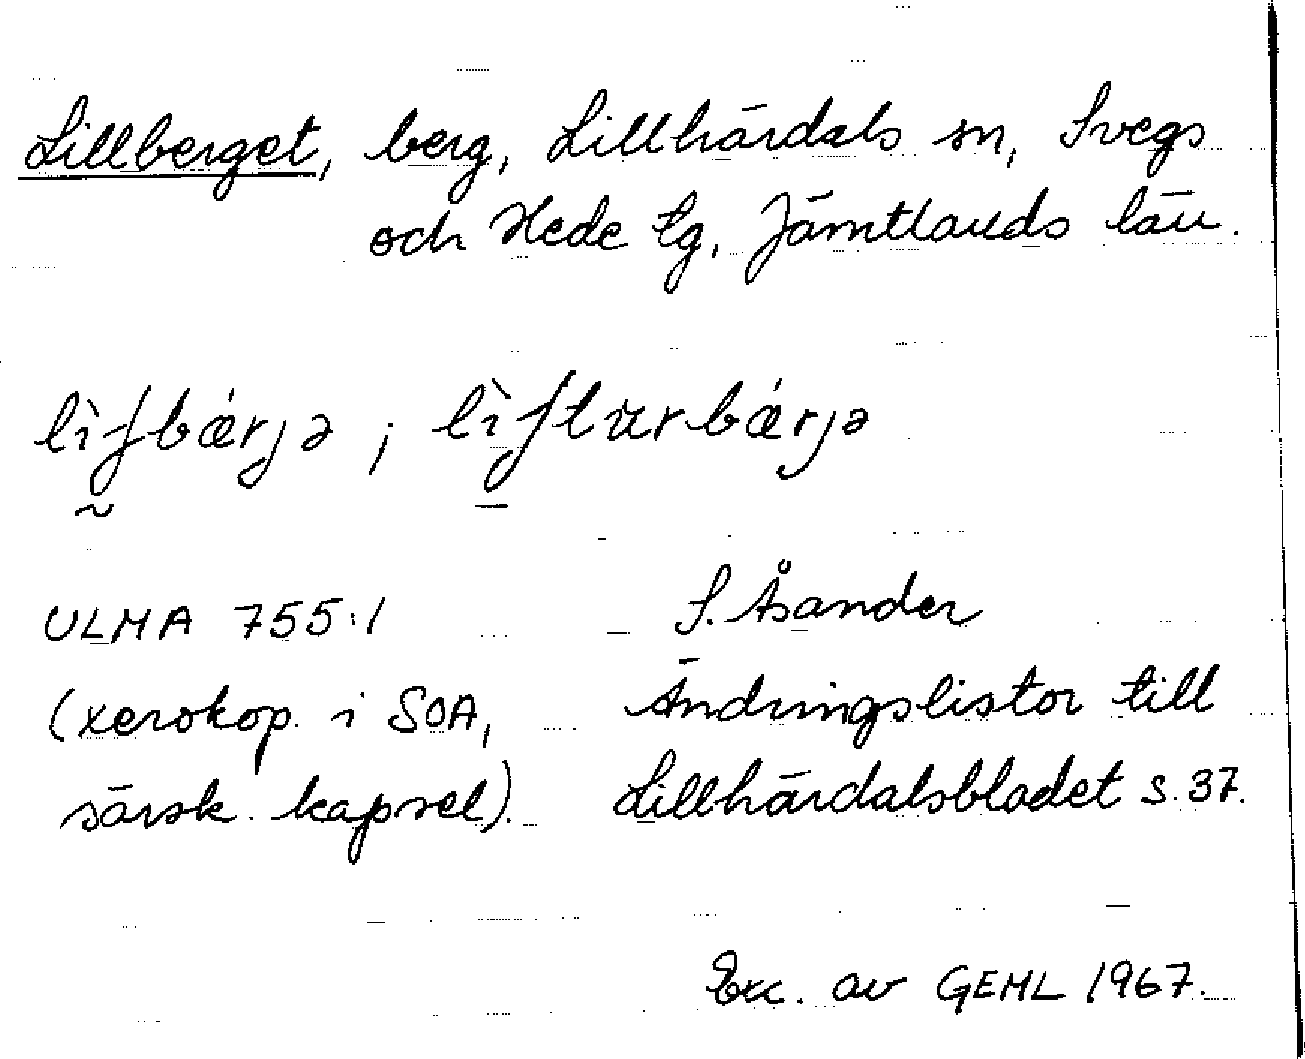 Lillberget, berg, Lillhärdals sn, Svegs
och Hede tg, Jämtlands län.
lìʃbǽrjə ; lìʃturbǽrjə
ULMA 755:1 S. Åsander
(xerokop. i SOA, Ändringslistor till
särsk. kapsel). Lillhärdalsbladet s. 37.
Exc. av GEHL 1967.